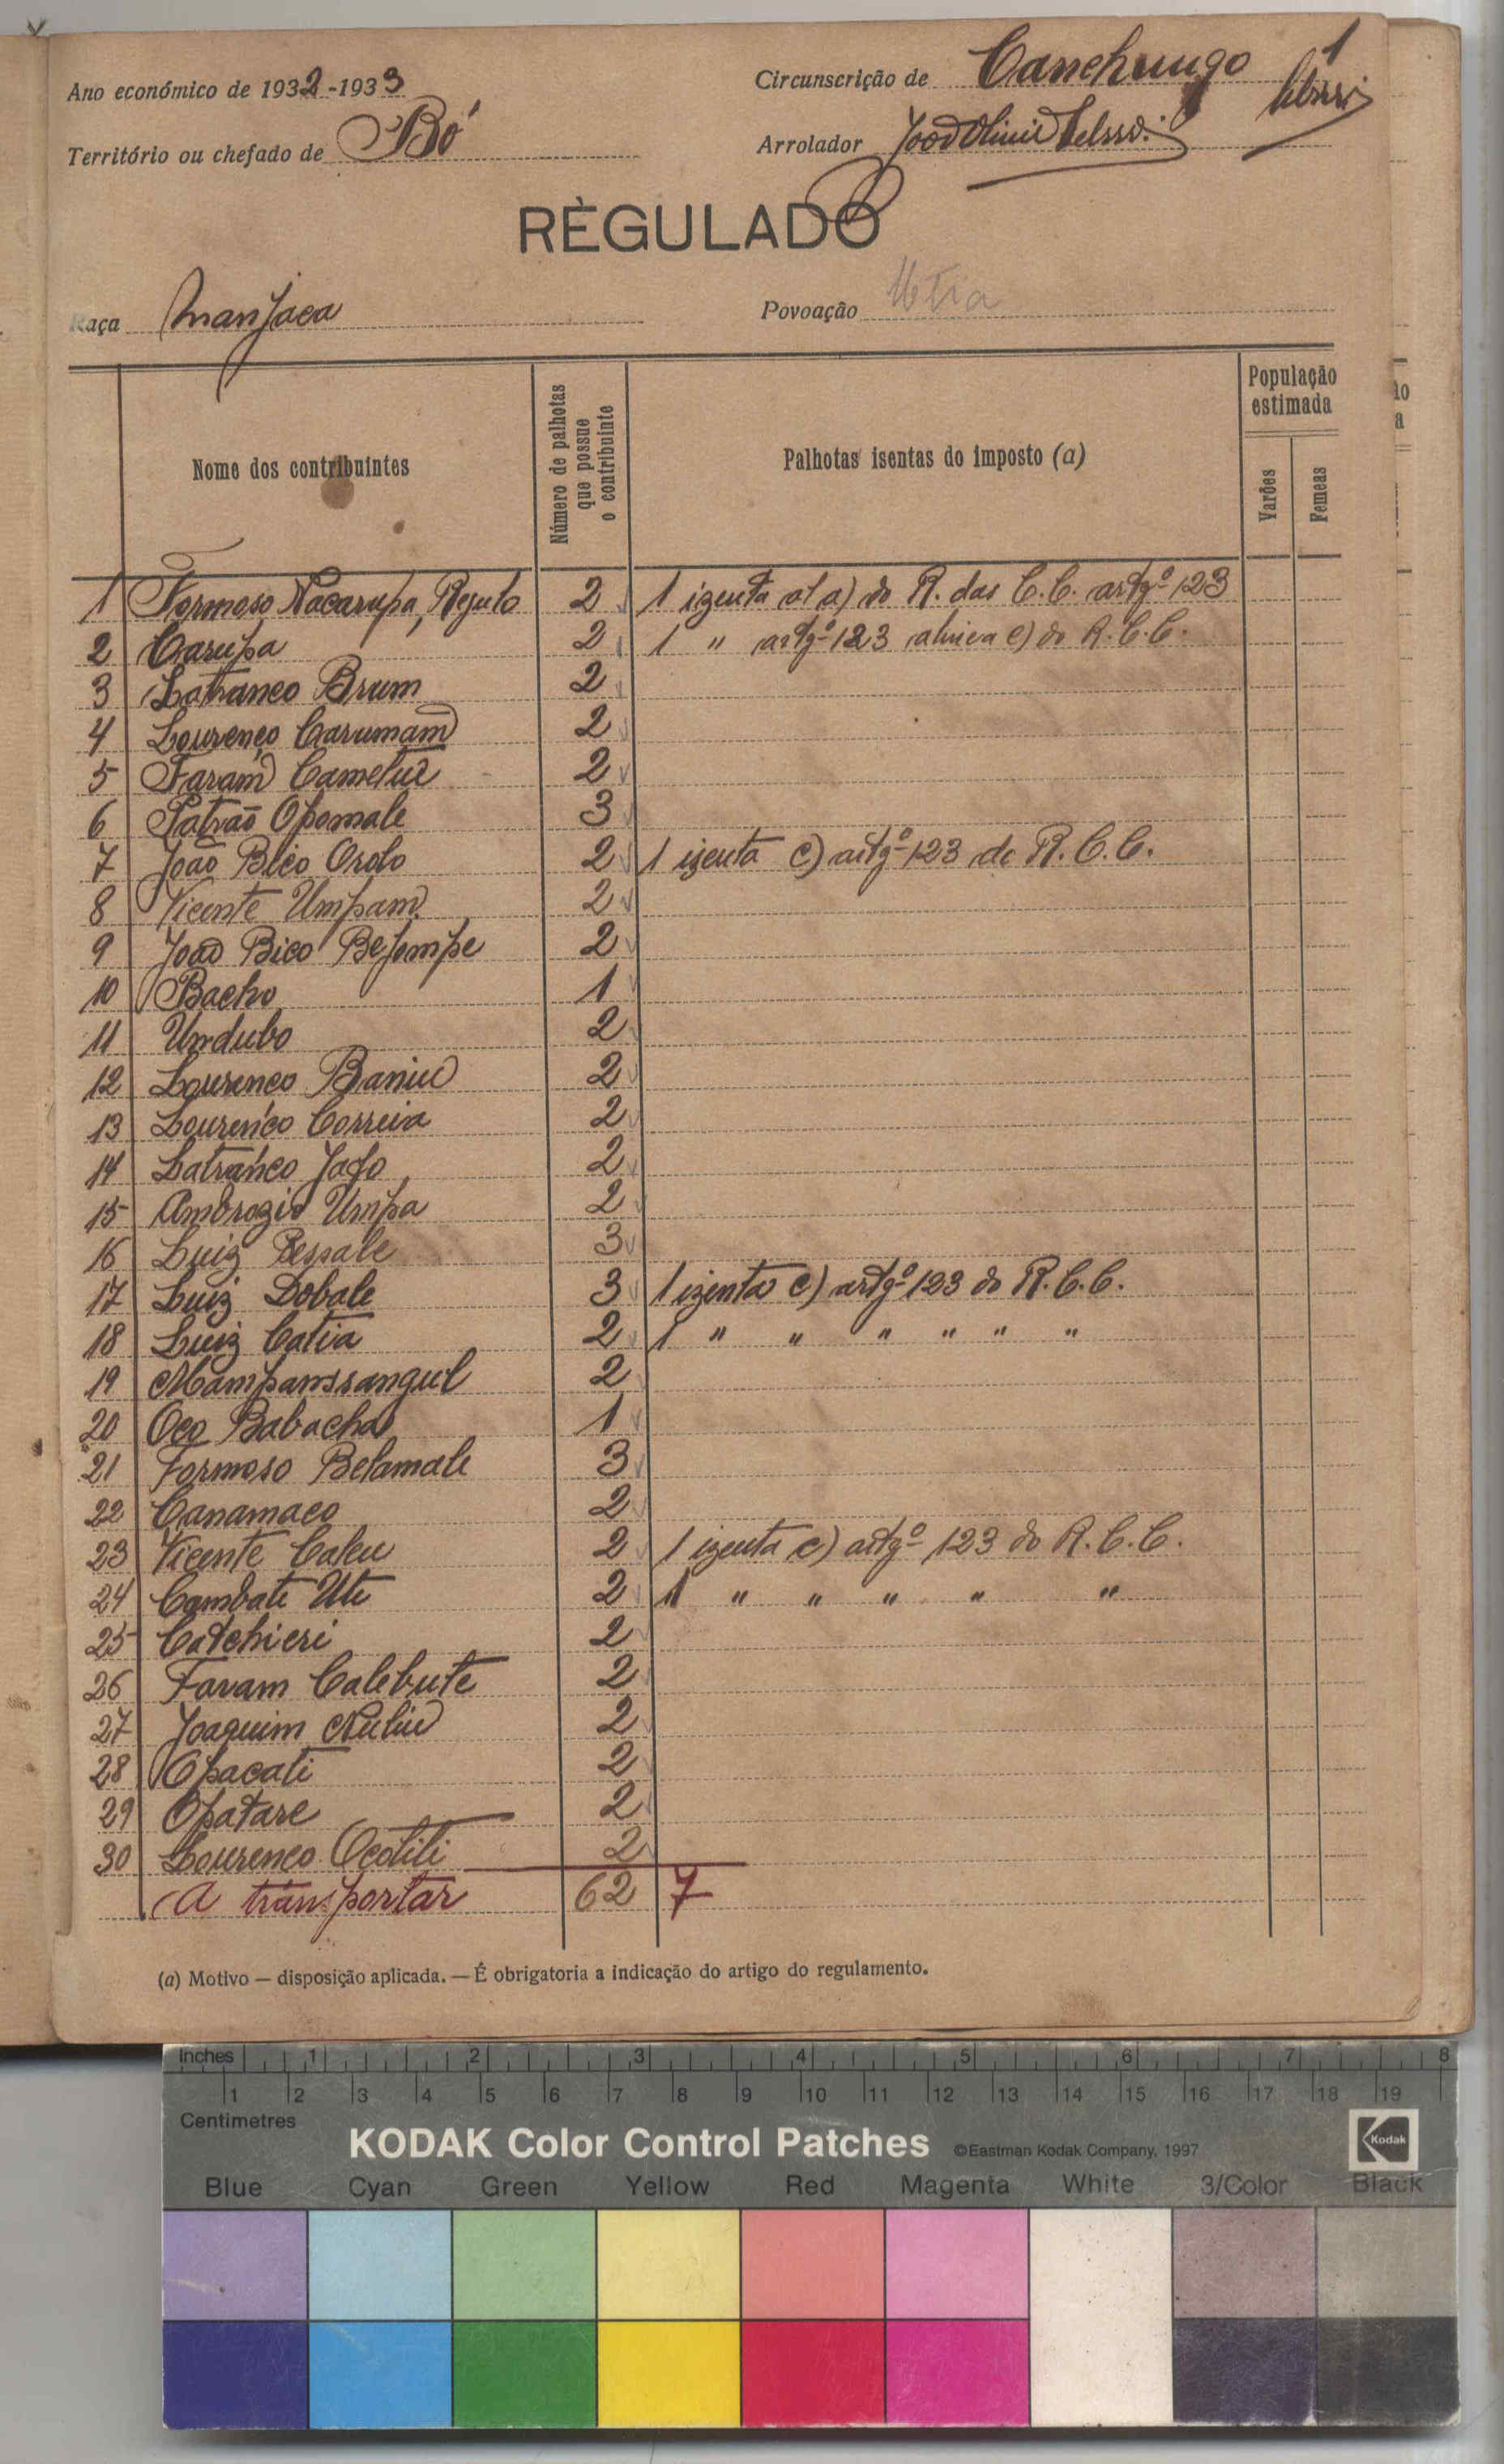 1
Ano económico de 1932-1933
Circunscrição de Canchungo
Território ou chefado de Bó
Arrolador
RÈGULADO
Raça Manjaca
Povoação Utia
Nome dos contribuintes
Número de palhotas que possue o contribuinte
Palhotas isentas do imposto (a)
População estimada
Varões
Femeas
1 Formoso Nacarupa, Regulo 2 1 izenta al a) do R. das C.C. artgº 123
2 Carupa 2 1 " artgº 123 alinea c) do R.C.C.
3 Latranco Brum 2
4 Lourenço Carumam 2
5 Faram 2
6 Patrão Opomale 3
7 João Bico Oroto 2 1 izenta c) artgº 123 do R.C.C.
8 Vicente Umpam 2
9 João Bico Befompe 2
10 Bacho 1
11 Undubo 2
12 Lourenço Baniu 2
13 Lourenço Correia 2
14 Latranco Jafo 2
15 Ambrozio Umpa 2
16 Luiz Bessale 3
17 Luiz Dobale 3 1 izenta c) artgº 123 do R.C.C.
18 Luiz Catia 2 1 " " " " " "
19 Mampanssangul 2
20 Oco Babacha 1
21 Formoso Belamale 3
22 Canamaco 2
23 Vicente Caleu 2 1 izenta c) artgº 123 do R.C.C.
24 Cambati Uti 2 1 " " " " "
25 Catchieri 2
26 Faram Calebute 2
27 Joaquim 2
28 Opacati 2
29 Opatare 2
30 Lourenço Ocotili 2
A transportar 62 7
(a) Motivo — disposição aplicada. — É obrigatoria a indicação do artigo do regulamento.
Inches 1 2 3 4 5 6 7 8
1 2 3 4 5 6 7 8 9 10 11 12 13 14 15 16 17 18 19
Centimetres
KODAK Color Control Patches ©Eastman Kodak Company, 1997 Kodak
Blue Cyan Green Yellow Red Magenta White 3/Color Black